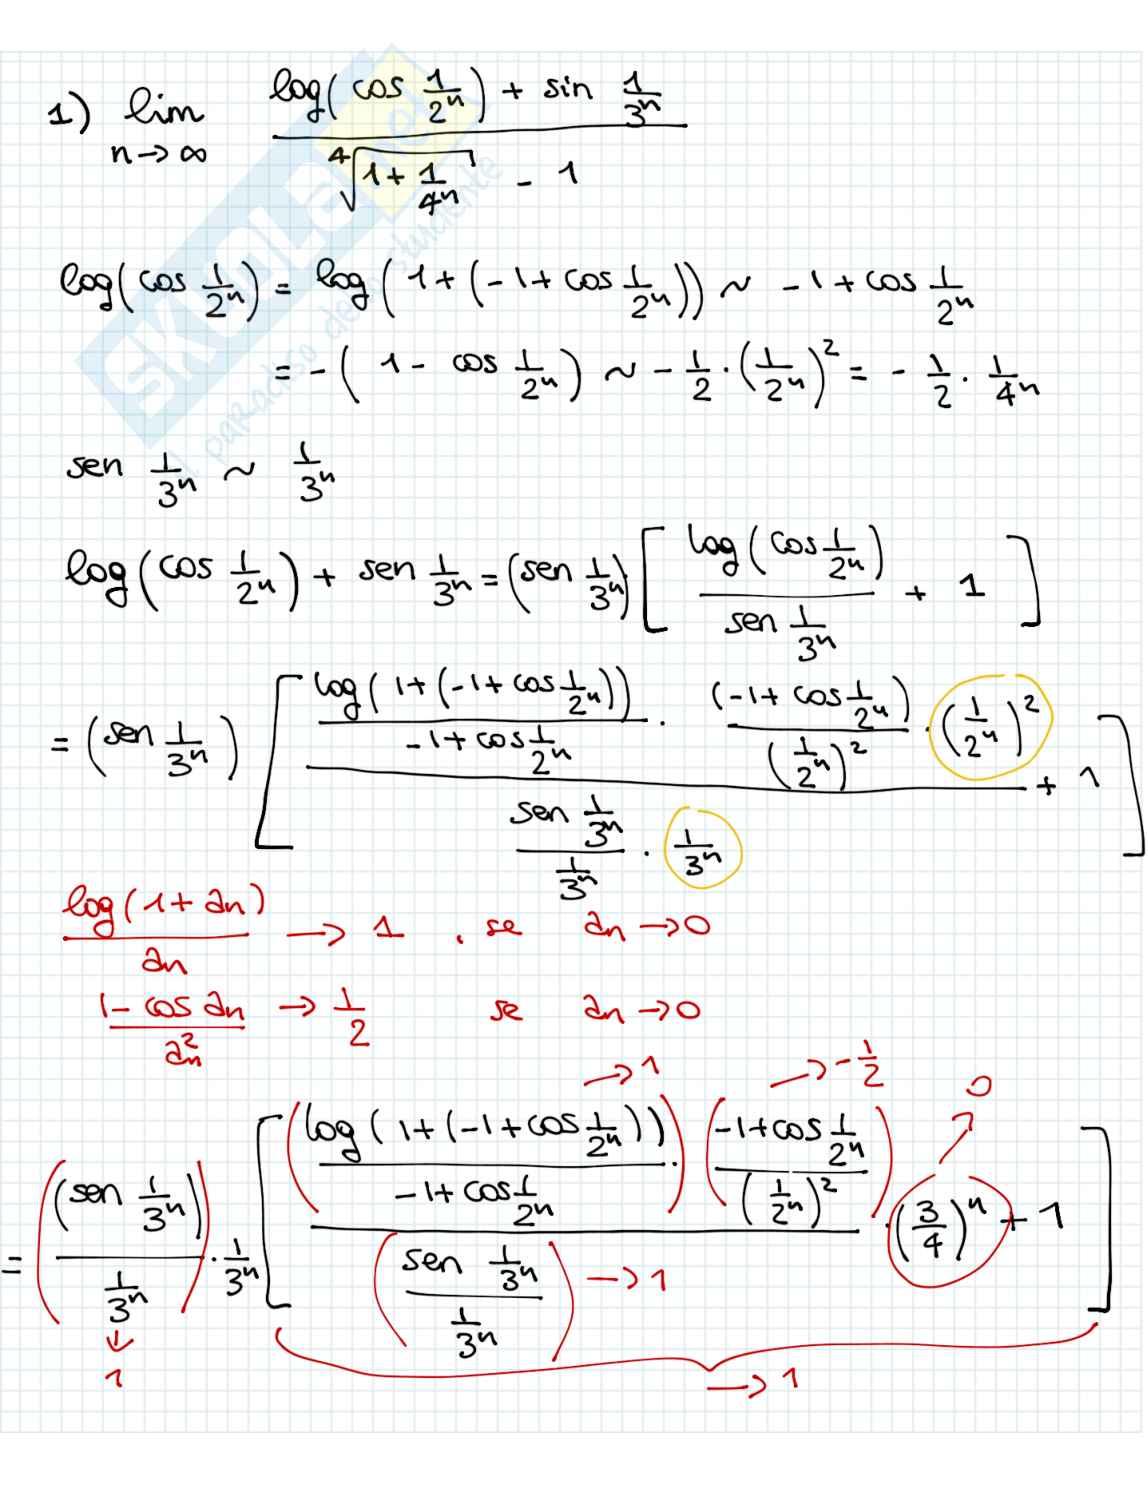 1) lim n→∞ (log(cos 1/2ⁿ) + sin 1/3ⁿ) / (⁴√(1 + 1/4ⁿ) - 1)
log(cos 1/2ⁿ) = log(1+(-1+cos 1/2ⁿ)) ~ -1+cos 1/2ⁿ
= -(1- cos 1/2ⁿ) ~ -1/2·(1/2ⁿ)² = - 1/2 · 1/4ⁿ
sen 1/3ⁿ ~ 1/3ⁿ
log(cos 1/2ⁿ) + sen 1/3ⁿ = (sen 1/3ⁿ)[log(cos 1/2ⁿ) / sen 1/3ⁿ + 1]
= (sen 1/3ⁿ)[(log(1+(-1+cos 1/2ⁿ)) / (-1+cos 1/2ⁿ) · (-1+cos 1/2ⁿ) / (1/2ⁿ)² · (1/2ⁿ)²) / (sen 1/3ⁿ / 1/3ⁿ · 1/3ⁿ) + 1]
log(1+an) / an → 1 . se an→0
1-cos an / an² → 1/2 se an→0
→1 →-1/2 0
= (sen 1/3ⁿ) / (1/3ⁿ) · 1/3ⁿ [(log(1+(-1+cos 1/2ⁿ)) / (-1+cos 1/2ⁿ)) · ((-1+cos 1/2ⁿ) / (1/2ⁿ)²) / (sen 1/3ⁿ / 1/3ⁿ) →1 · (3/4)ⁿ + 1]
↓
1 →1
SKUOLA.net
il paradiso dello studente